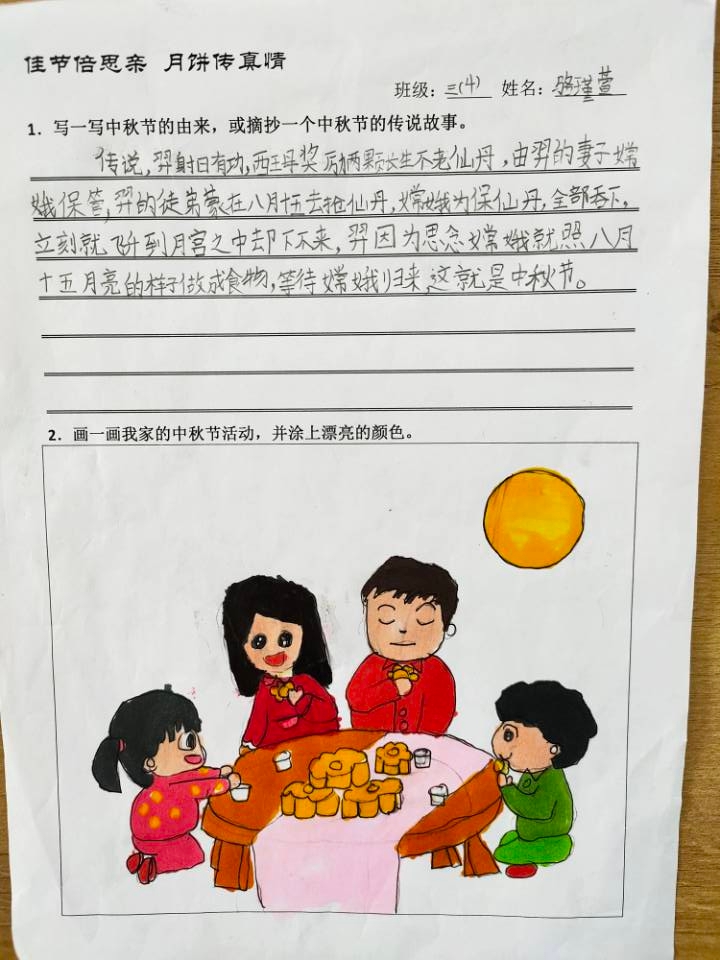 佳节倍思亲 月饼传真情
班级：三(4) 姓名：骆瑾萱
1．写一写中秋节的由来，或摘抄一个中秋节的传说故事。
传说，羿射日有功，西王母奖励两颗长生不老仙丹，由羿的妻子嫦
娥保管，羿的徒弟蒙在八月十五去抢仙丹，嫦娥为保仙丹，全部吞下，
立刻就飞升到月宫之中却下不来，羿因为思念嫦娥就照八月
十五月亮的样子做成食物，等待嫦娥归来，这就是中秋节。
2．画一画我家的中秋节活动，并涂上漂亮的颜色。